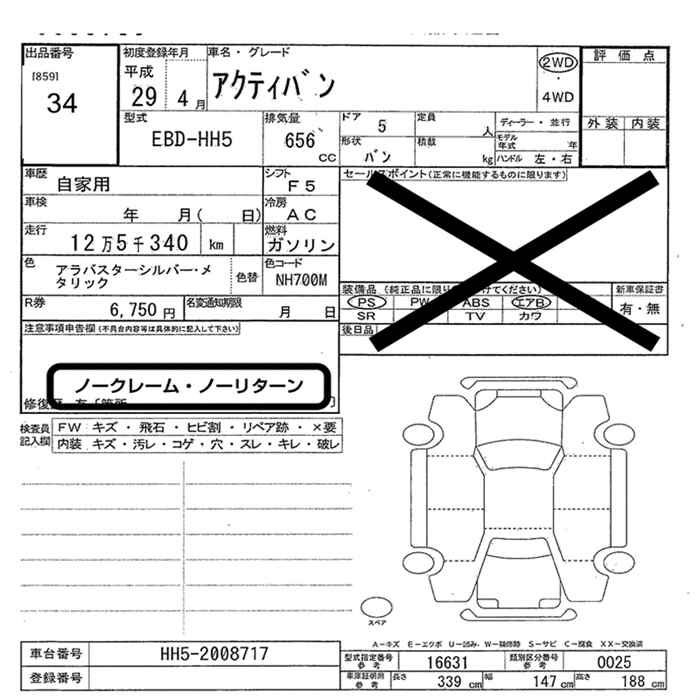 出品番号 初度登録年月 車名・グレード 2WD 評価点
[859] 平成 アクティバン ・
34 29 4月 4WD
型式 排気量 ドア 5 定員 人 ディーラー・並行 外装 内装
EBD-HH5 656 cc 形状 バン 積載 kg モデル年式 年
ハンドル 左・右
車歴 自家用 シフト F5 セールスポイント(正常に機能するものに限ります)
車検 年 月( 日) 冷房 AC
走行 12万5千340 km 燃料 ガソリン
色 アラバスターシルバー・メタリック 色替 色コード NH700M 装備品 新車保証書
PS PW ABS エアB 有・無
R券 6,750円 名変通知期限 月 日 SR TV カワ
注意事項申告欄(不具合内容等は具体的に記入して下さい) 後日品
ノークレーム・ノーリターン
検査員記入欄 FW キズ・飛石・ヒビ割・リペア跡・×要
内装 キズ・汚レ・コゲ・穴・スレ・キレ・破レ
スペア
A-キズ E-エクボ U-凹み W-補修跡 S-サビ C-腐食 XX-交換済
車台番号 HH5-2008717 型式指定番号 参考 16631 類別区分番号 参考 0025
登録番号 車庫証明用 参考 長さ 339cm 幅 147cm 高さ 188cm